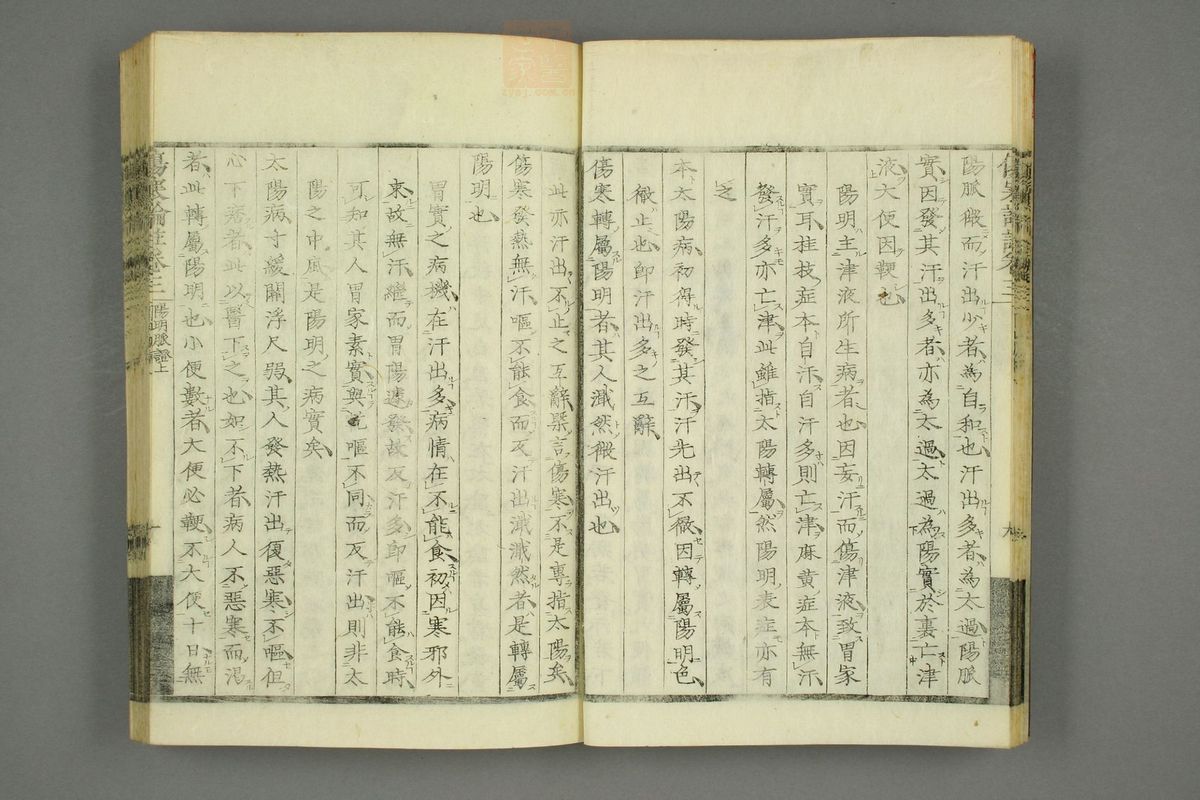 陽脈微而汗出少者為自和也汗出多者為太過陽脈
實因發其汗出多者亦為太過太過為陽實於裏亡津
液大便因鞕也
陽明主津液所生病者也因妄汗而傷津液致胃家
實耳桂枝症本自汗自汗多則亡津麻黄症本無汗
發汗多亦亡津此雖指太陽轉屬然陽明表症亦有
之
本太陽病初得時發其汗汗先出不徹因轉屬陽明也
徹止也即汗出多之互辭
傷寒轉屬陽明者其人濈然微汗出也
此亦汗出不止之互辭槩言傷寒不是專指太陽矣
傷寒發熱無汗嘔不能食而反汗出濈濈然者是轉屬
陽明也
胃實之病機在汗出多病情在不能食初因寒邪外
束故無汗繼而胃陽遽發故反汗多即嘔不能食時
可知其人胃家素實與乾嘔不同而反汗出則非太
陽之中風是陽明之病實矣
太陽病寸緩關浮尺弱其人發熱汗出復惡寒不嘔但
心下痞者此以醫下之也如不下者病人不惡寒而渴
者此轉屬陽明也小便數者大便必鞕不大便十日無
傷寒論註卷三
陽明脈證上